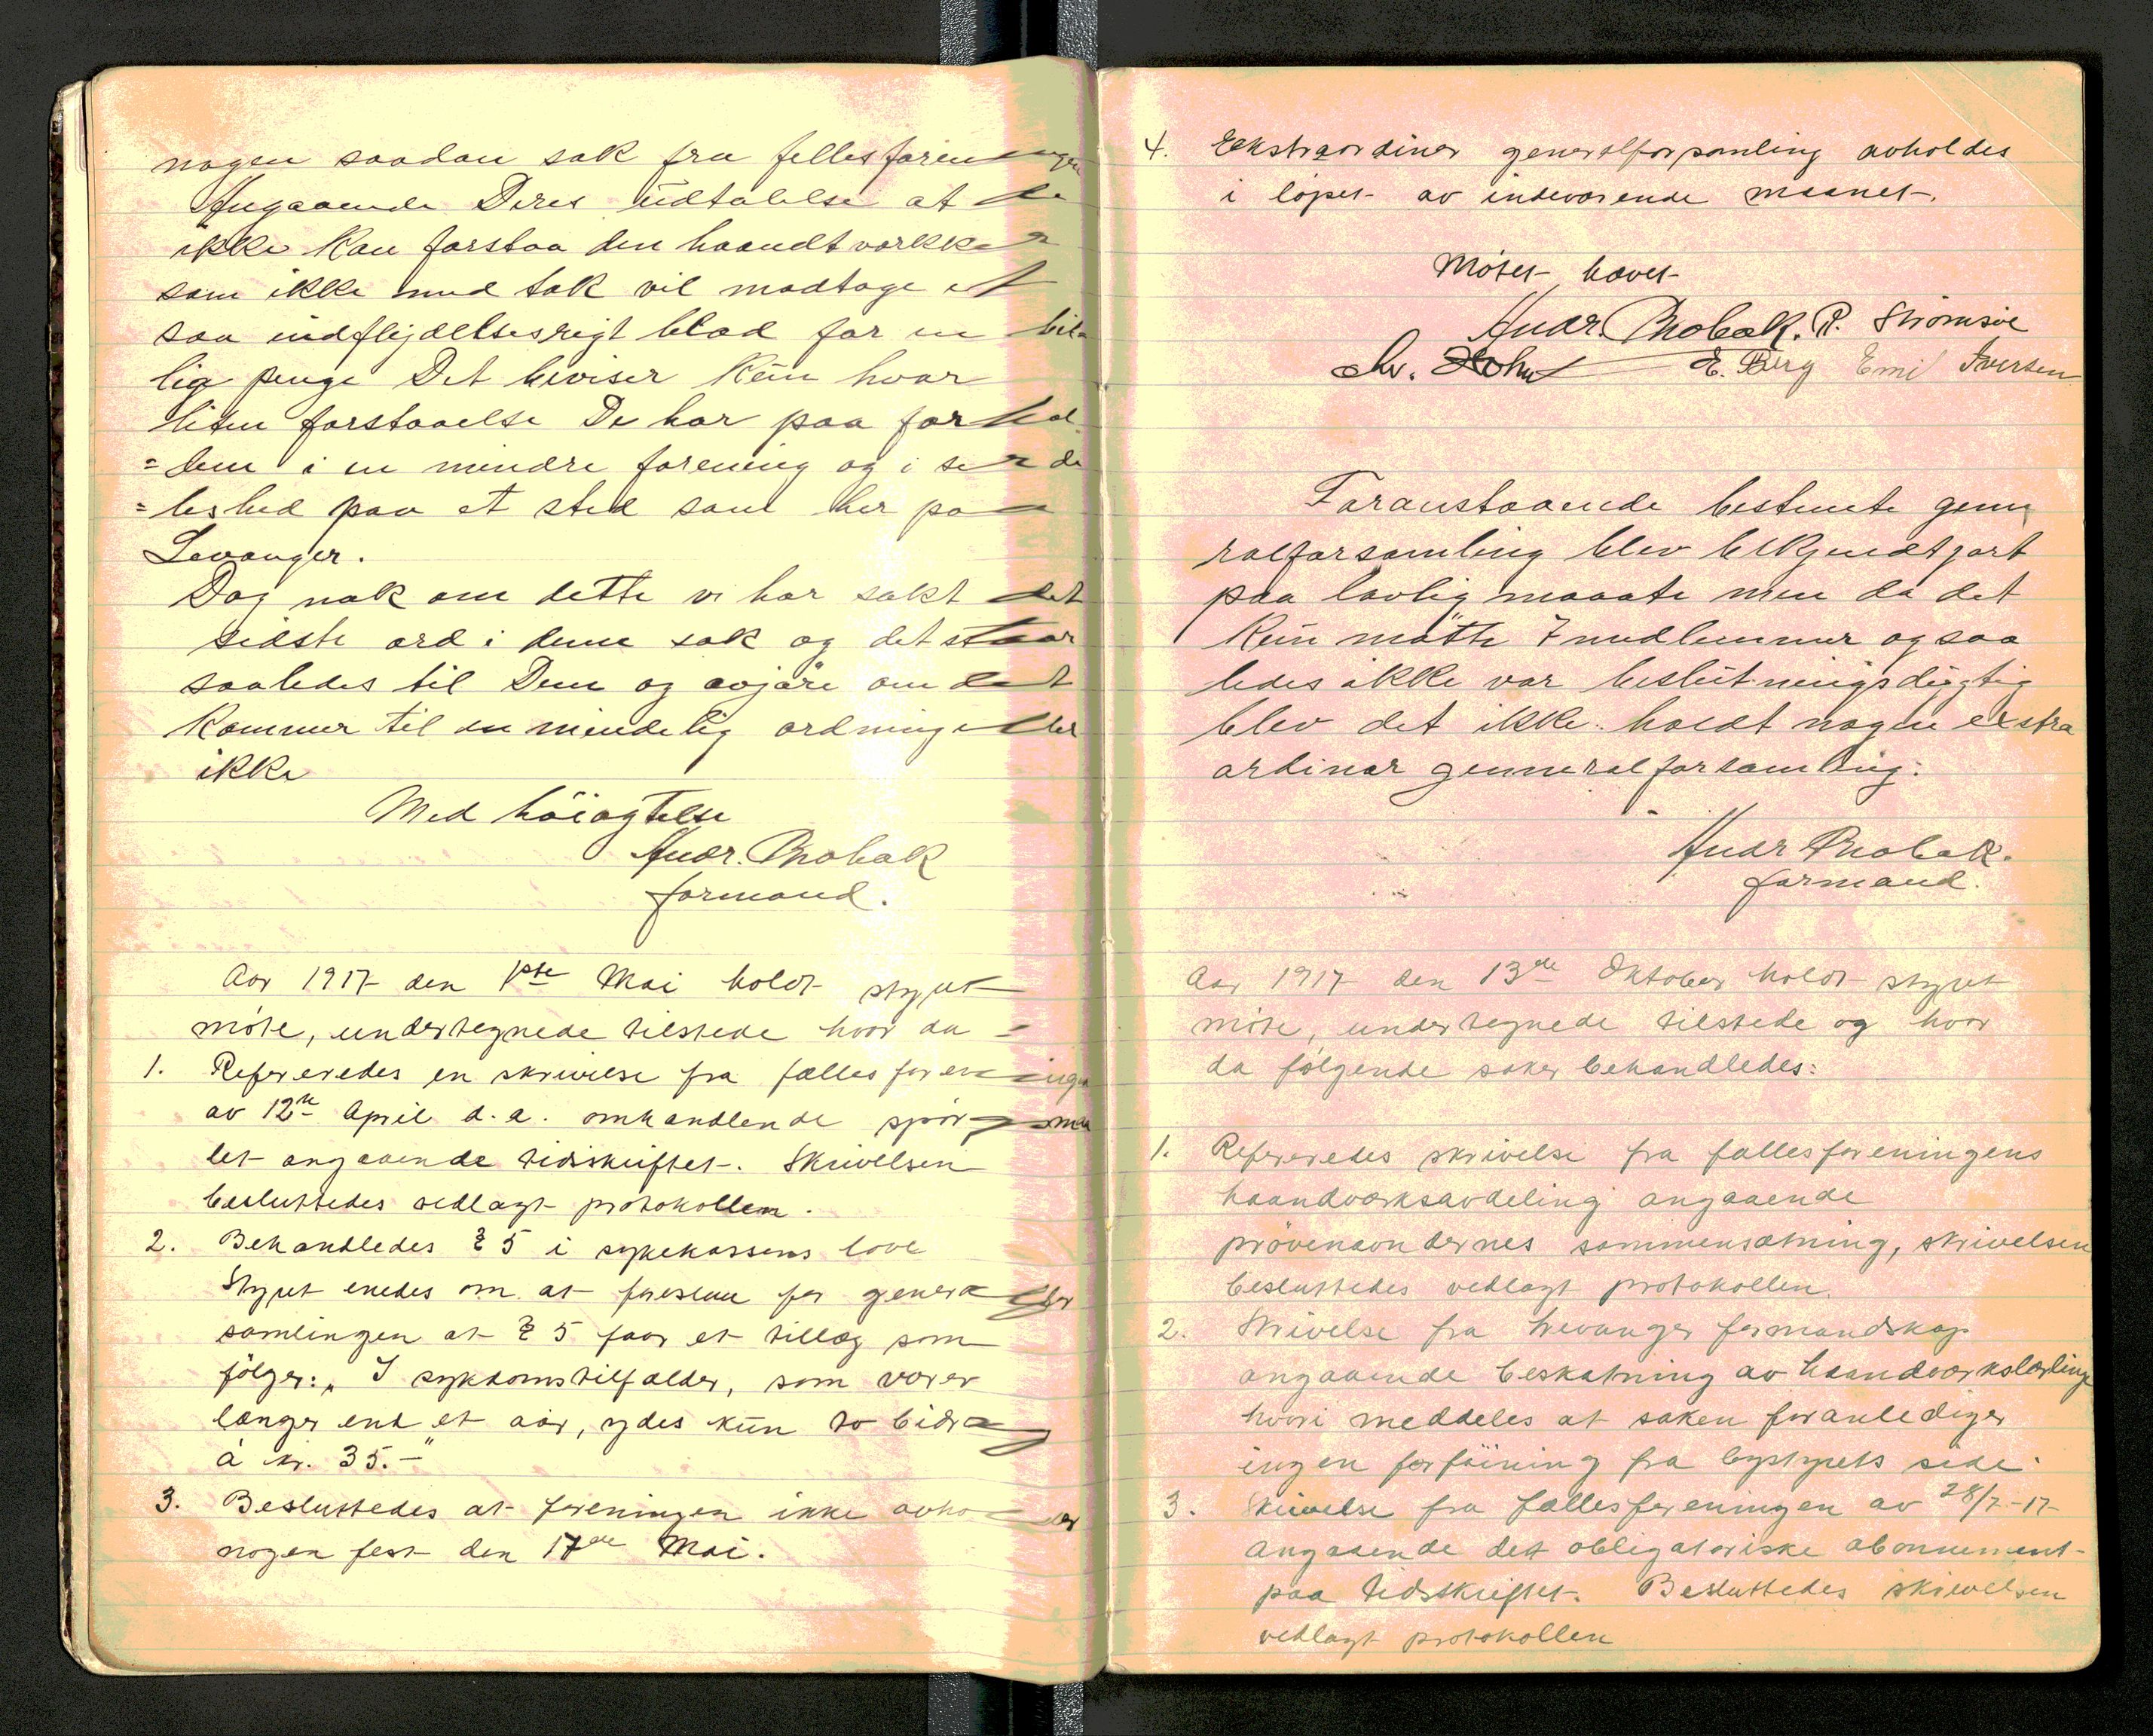 nogen saadan sak fra fellesforeningen
Angaaende Deres üdtalelse at de
ikke kan forstaa den haandtværkker
som ikke med tak vil modtage et
saa indflydelsesrigt blad for en bil-
lig penge Det beviser kün hvor
liten forstaaelse De har paa forhol-
=dene i en mindre forening og i særde
=leshed paa et sted som her paa
Levanger.
Dog nok om dette vi har sakt det
sidste ord i denne sak og det staar
saaledes til Dem og avjöre om det
kommer til en mindelig ordning eller
ikke
Med höiagtelse
Andr. Mobak
formand.
Aar 1917 den 1ste Mai holdt styret
möte, undertegnede tilstede hvor da
1. Refereredes en skrivelse fra fællesforeningen
av 12te April d. a. omhandlende spörgsmaa
let angaaende tidsskriftet. Skrivelsen
besluttedes vedlagt protokollen.
2. Behandledes § 5 i sykekassens love
Styret enedes om at foreslaa for generalfor
samlingen at § 5 faar et tillæg som
fölger: „I sykdomstilfælder, som varer
længer end et aar, ydes kün to bidrag
à kr. 35.-"
3. Besluttedes at foreningen ikke avholder
nogen fest den 17de Mai.
4. Ekstraordinær generalforsamling avholdes
i löpet av indeværende maanet.
Mötet hævet
Andr. Mobak. R. Strömsöe
E. Berg Emil Iversen
Foranstaaende bestemte gene
ralforsamling blev bekjendtgjort
paa lovlig maaate men da det
kün mötte 7 medlemmer og saa
ledes ikke var beslütningsdygtig
blev det ikke holdt nogen exstra
ordinær genneralforsamling.
Andr Mobak.
formand.
Aar 1917 den 13de Oktober holdt styret
möte, undertegnede tilstede og hvor
da fölgende saker behandledes:
1. Refereredes skrivelse fra fællesforeningens
haandværksavdeling angaaende
prövenævndernes sammensætning, skrivelsen
besluttedes vedlagt protokollen.
2. Skrivelse fra Levanger formandskap
angaaende beskatning av haandværkslærlinge
hvori meddeles at saken foranlediger
ingen forföining fra bystyrets side.
3. Skrivelse fra fællesforeningen av 28/7-17
angaaende det obligatoriske abonnement
paa tidsskriftet. Besluttedes skrivelsen
vedlagt protokollen